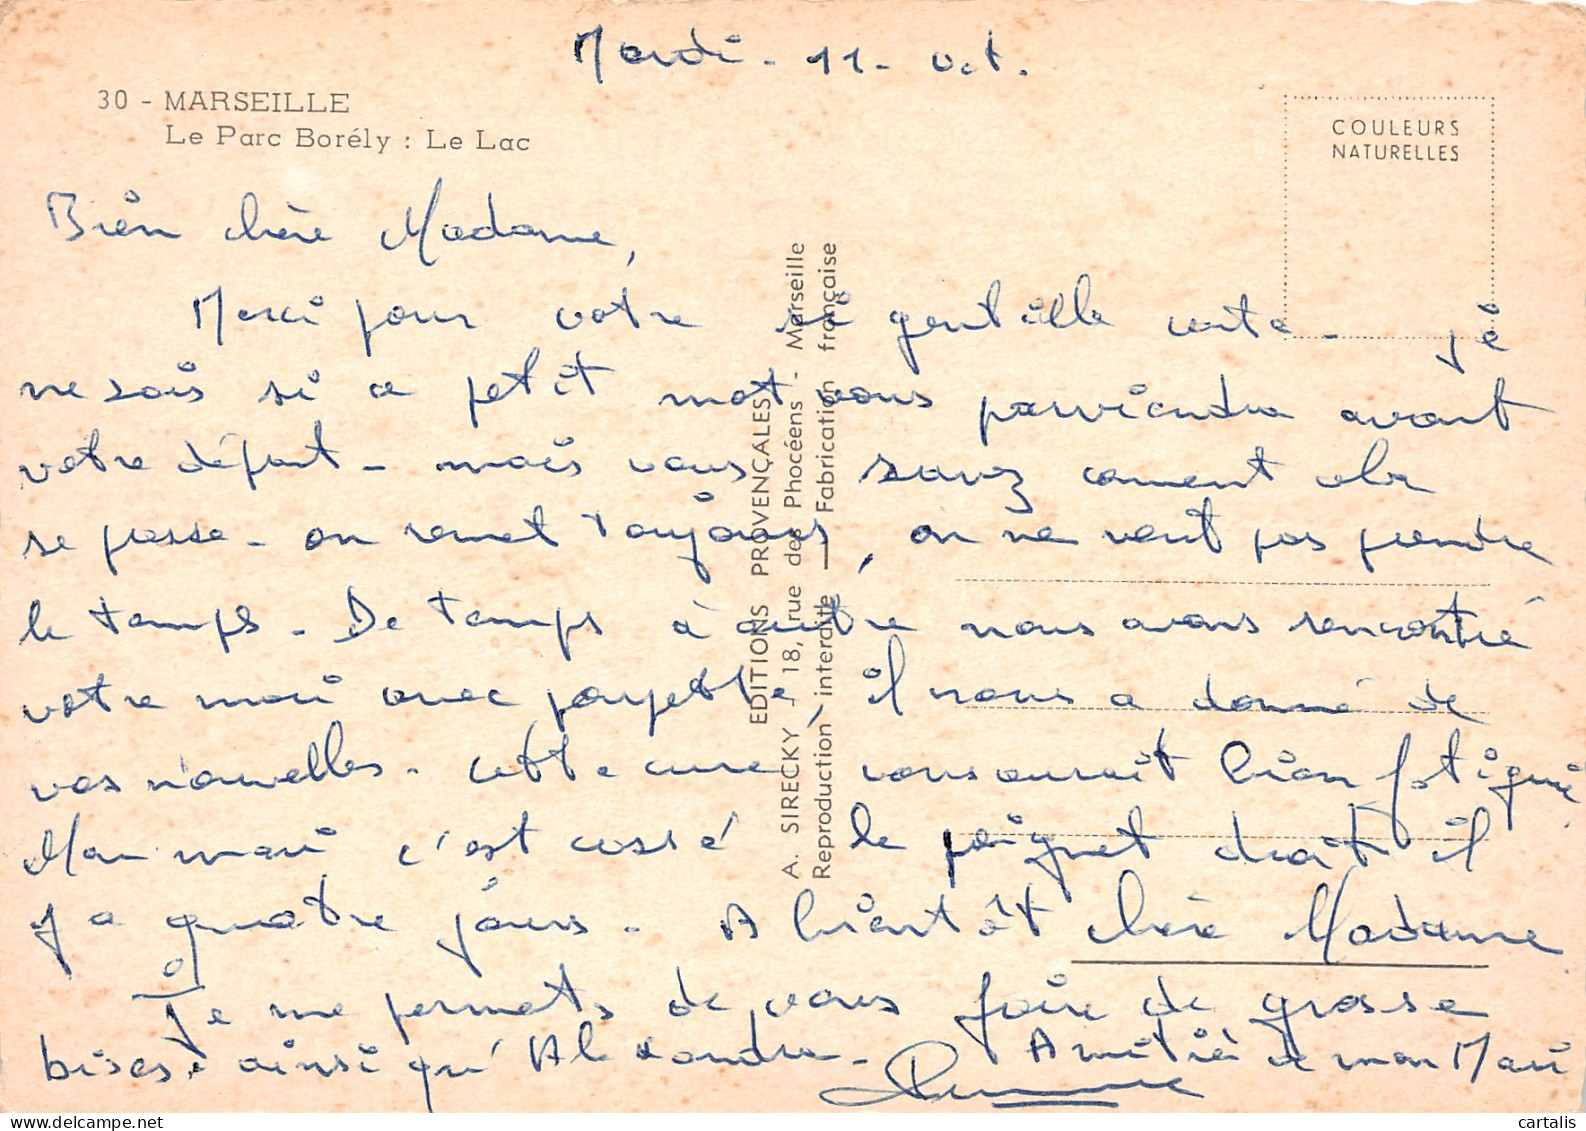 Mardi - 11 - Oct.
30 - MARSEILLE
Le Parc Borély : Le Lac
COULEURS
NATURELLES
Bien chère Madame,
Merci pour votre si gentille carte - je
ne sais si ce petit mot vous parviendra avant
votre départ - mais vous savez coment cela
se passe - on remet toujours, on ne veut pas prendre
le temps - De temps à autre nous avons rencontré
votre mari avec il nous a donné de
vos nouvelles - cette cure vous aurait bien fatigué
Mon mari c'est cassé le poignet droit il
y a quatre jours - A bientôt chère Madame
Je me permets de vous faire de grosse
bises ainsi qu'Alexandra - Amitié de mon Mari
EDITIONS PROVENÇALES
A. SIRECKY - 18, rue des Phocéens - Marseille
Reproduction interdite — Fabrication française
cartalis